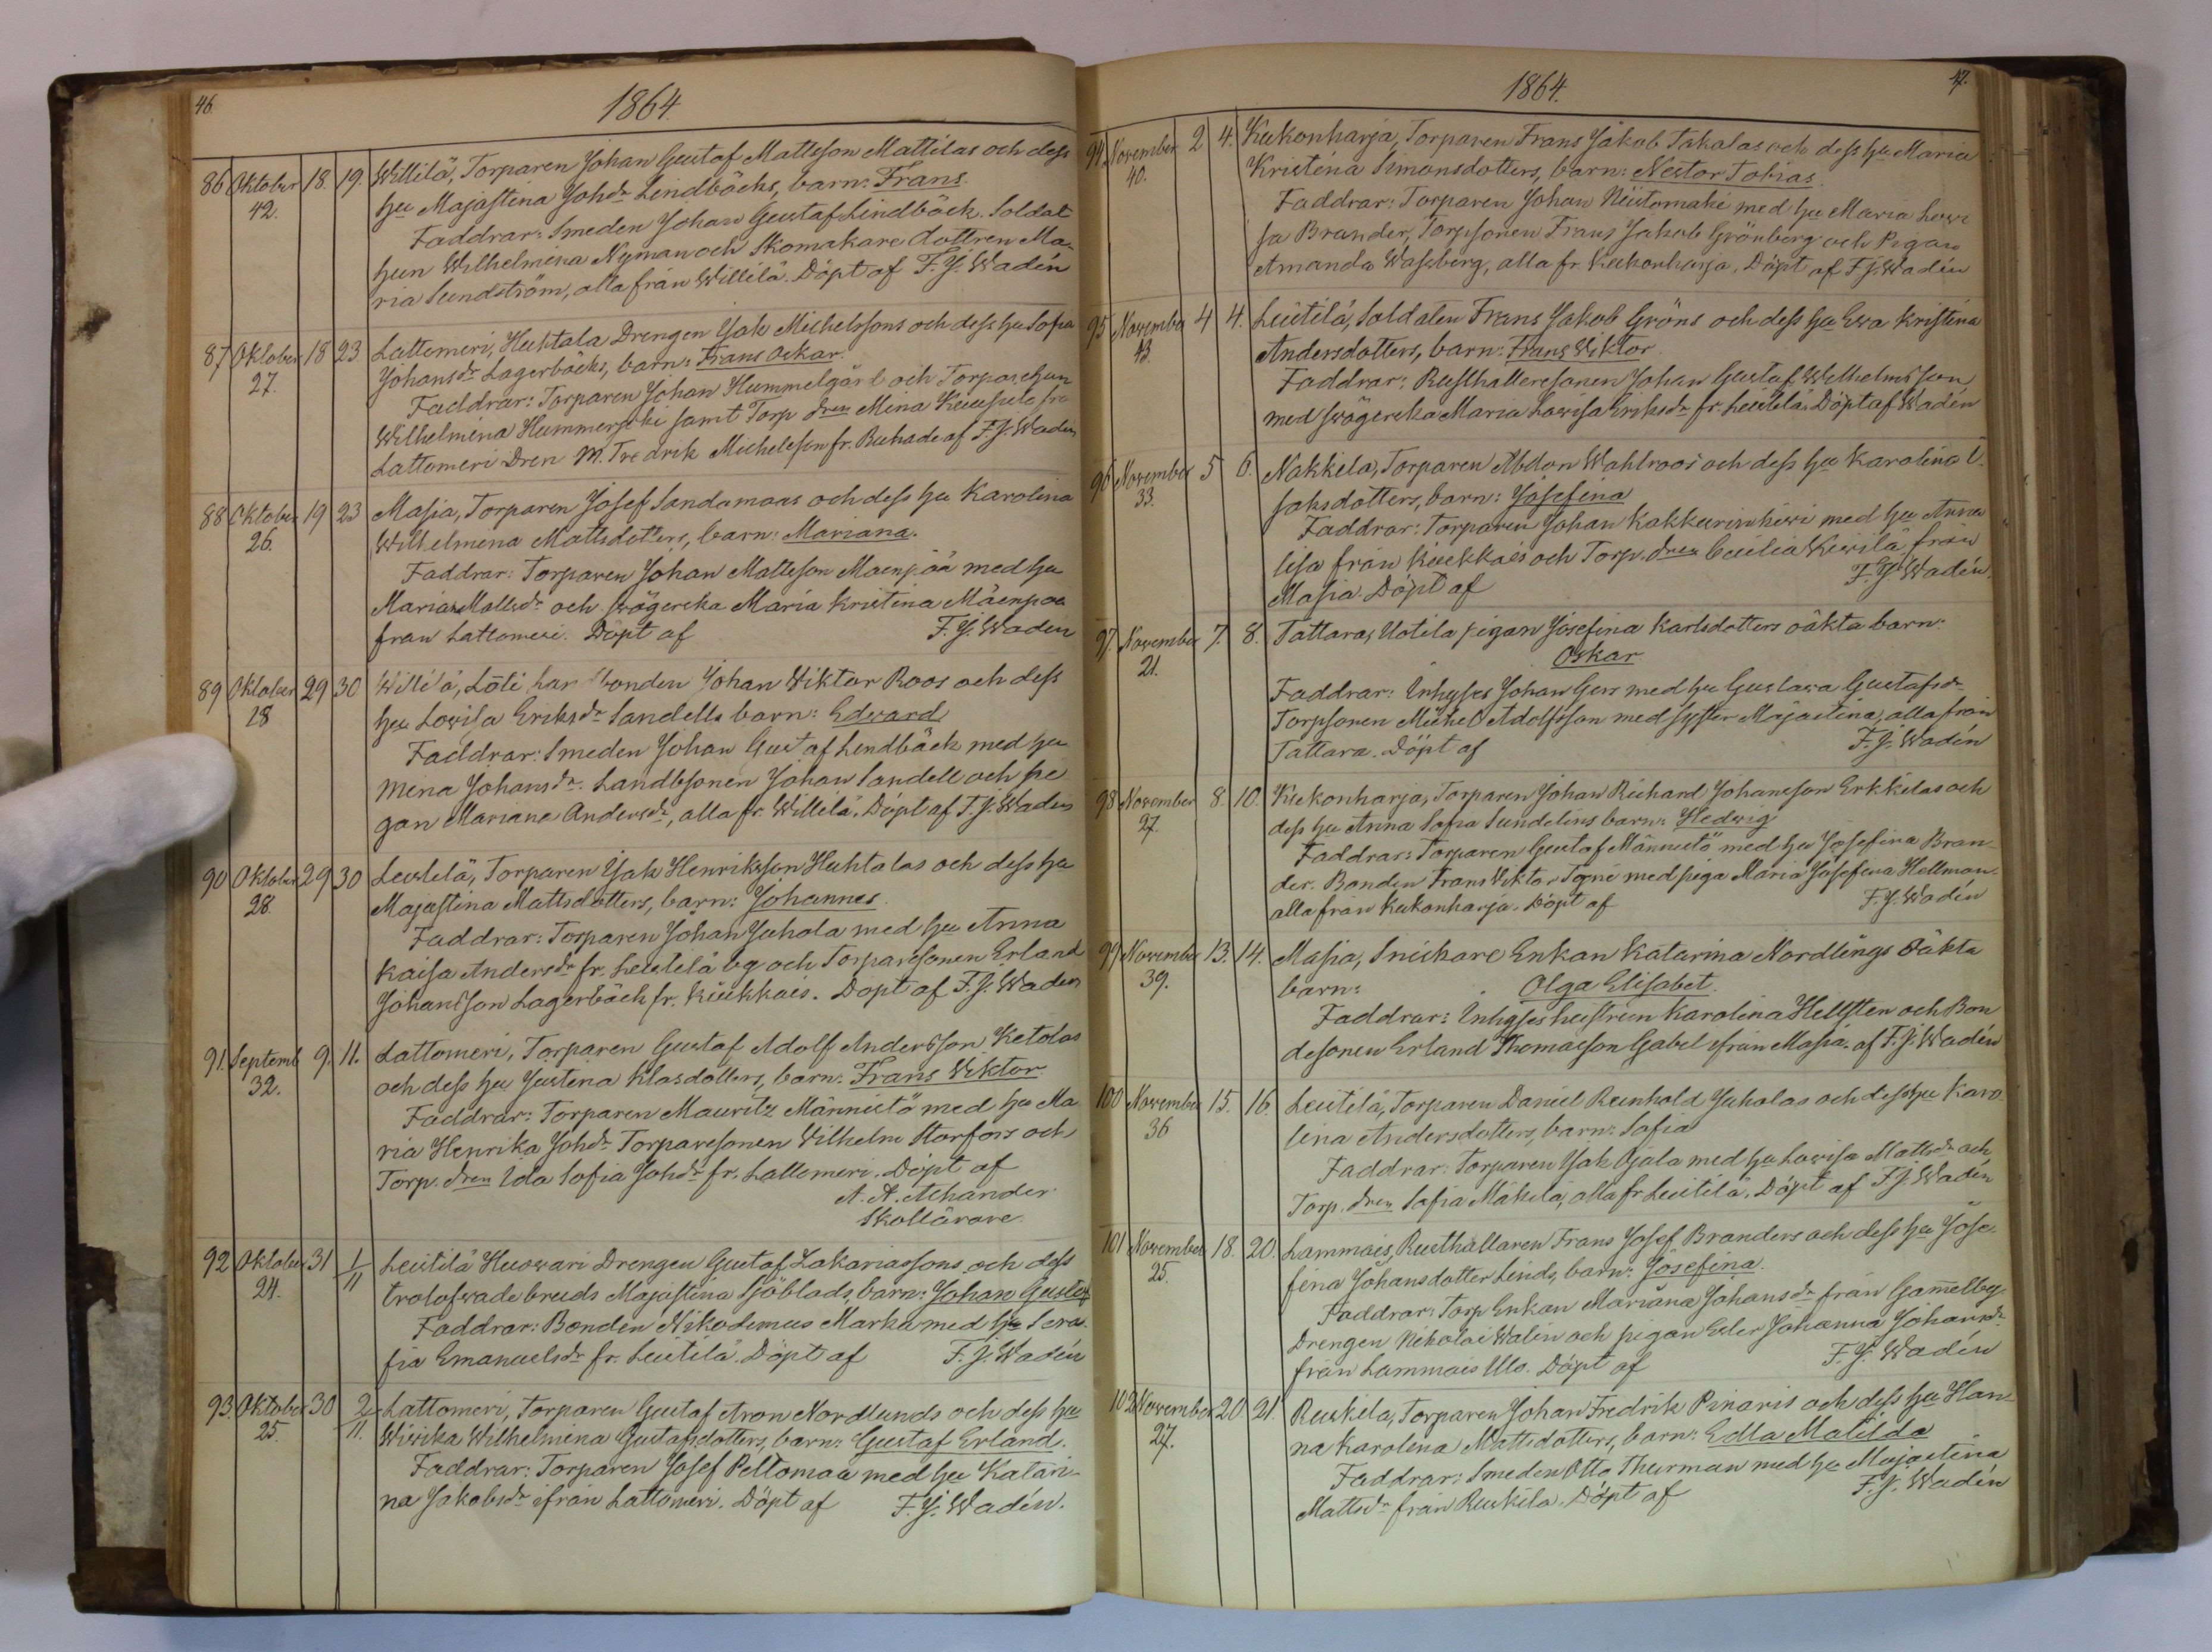 46.
1864.
86 Oktober 18. 19. Willilä, Torparen Johan Gustaf Mattsson Mattilas och dess
42. hu Majastina Johdr Lindbäcks, barn: Frans.
Faddrar: Smeden Johan Gustaf Lindbäck. Soldat
hun Wilhelmina Nyman och Skomakare dottren Ma-
ria Sundström, alla från Willilä. Döpt af F. J. Wadén
87 Oktober 18 23 Lattomeri, Huhtala Drengen Isak Michelssons och dess hu Sofia
27. Johansdr Lagerbäcks, barn: Frans Oskar.
Faddrar: Torparen Johan Hummelgård och Torpare hun
Wilhelmina Hummerjoki samt Torp dren Mina
Lattomeri Dren M. Fredrik Michelsson fr. af F. J. Wadén
88 Oktober 19 23 Masia, Torparen Josef Sandamaas och dess hu Karolina
26. Wilhelmina Mattsdotters, barn: Mariana.
Faddrar: Torparen Johan Mattsson Mäenpää med hu
Maria Mattsdr och swägerska Maria Kristina Mäenpää
från Lattomeri. Döpt af F. J. Wadén
89 Oktober 29 30 Willilä, Bonden Johan Wiktor Roos och dess
28 hu Lovisa Eriksdr Sandells barn: Edward
Faddrar: Smeden Johan Gustaf Lindbäck med hu
Mina Johansdr. Landbsonen Johan Sandell och pi
gan Mariana Andersdr, alla fr. Willilä. Döpt af F. J. Wadén
90 Oktober 29 30 Leistilä, Torparen Isak Henriksson Huhtalas och dess hu
28. Majastina Mattsdotters, barn: Johannes.
Faddrar: Torparen Johan Juhola med hu Anna
Kaisa Andersdr fr. Leistilä by och Torparesonen Erland
Johansson Lagerbäck fr. Kiukkais. Döpt af F. J. Wadén
91. Septemb 9. 11. Lattomeri, Torparen Gustaf Adolf Andersson Ketolas
32. och dess hu Justina Klasdotters, barn: Frans Viktor.
Faddrar: Torparen Mauritz Männistö med hu Ma
ria Henrika Johdr Torparesonen Vilhelm Storfors och
Torp. dren Ida Sofia Johdr fr. Lattomeri. Döpt af
A. A. Alhander
Skollärare.
92 Oktober 31 1/11 Leistilä Huowari Drengen Gustaf Zakariassons och dess
24. trolofwade bruds Majastina Sjöblads, barn: Johan Gustaf
Faddrar: Bonden Nikodemus Marka med hu Sera
fia Emanuelsdr fr. Leistilä. Döpt af F. J. Wadén
93. Oktober 30 2/11. Lattomeri, Torparen Gustaf Aron Nordlunds och dess hu
25. Wiwika Wilhelmina Gustafsdotters, barn: Gustaf Erland.
Faddrar: Torparen Josef Peltomaa med hu Katari-
na Jakobsdr ifrån Lattomeri. Döpt af F. J. Wadén.
47.
1864.
94. November 2 4. Kukonharja, Torparen Frans Jakob Takalas och dess hu Maria
40. Kristina Simonsdotters, barn: Nestor Tobias.
Faddrar: Torparen Johan Niitomäki med hu Maria Lowi
sa Brander, Torpsonen Frans Jakob Grönberg och Pigan
Amanda Wassberg, alla fr. Kukonharja. Döpt af F J. Wadén
95 November 4 4. Leistilä, Soldaten Frans Jakob Gröns och dess hu Ewa Kristina
43. Andersdotters, barn: Frans Wiktor.
Faddrar: Rusthallaresonen Johan Gustaf Wilhelmsson
med swägerska Maria Lowisa Eriksdr fr. Leistilä. Döpt af Wadén
96 November 5 6. Nakkila, Torparen Abdon Wahlroos och dess hu Karolina I-
33. saksdotters, barn: Josefina
Faddrar: Torparen Johan Kakkurinkiwi med hu Anna
Lisa från Kiukkais och Torp. dren Cecilia Kiwilä, från
Masia. Döpt af F. J. Wadén.
97. November 7. 8. Tattara, Uotila pigan Josefina Karlsdotters oäkta barn:
21. Oskar
Faddrar: Inhyses Johan Gers med hu Gustawa Gustafsdr
Torpsonen Michel Adolfsson med syster Majastina, alla från
Tattara. Döpt af F. J. Wadén
98 November 8. 10. Kukonharja, Torparen Johan Richard Johansson Erkkilas och
27. dess hu Anna Sofia Sundelins barn: Hedwig
Faddrar: Torparen Gustaf Männistö med hu Josefina Bran-
der. Bonden Frans Wiktor med piga Maria Josefina Hellman.
alla från Kukonharja. Döpt af F. J. Wadén
99 November 13. 14. Masia, Snickare Enkan Katarina Nordlings Oäkta
39. barn: Olga Elisabet.
Faddrar: Inhyses hustrun Karolina Hellsten och Bon
desonen Erland Thomasson Gabel ifrån Masia. af F. J. Wadén
100 November 15. 16. Leistilä, Torparen Daniel Reinhold Juholas och dess hu Karo
36 lina Andersdotters, barn: Sofia
Faddrar: Torparen Isak Ojala med hu Lowisa Mattsdr och
Torp. dren Sofia Mäkelä, alla fr Leistilä. Döpt af F J. Wadén
101 November 18. 20. Lammais, Rusthållaren Frans Josef Branders och dess hu Jose-
25. fina Johansdotter Linds, barn: Josefina.
Faddrar: Torp Enkan Mariana Johansdr från Gamelby.
Drengen Nikolai Walin och pigan Ester Johanna Johansdr
från Lammais Ulo. Döpt af F. J. Wadén
102 November 20 21. Ruskila, Torparen Johan Fredrik Pinaris och dess hu Han-
27. na Karolina Mattsdotters, barn: Edla Matilda
Faddrar: Smeden Otto Thurman med hu Majastina
Mattsdr från Ruskila. Döpt af F. J. Wadén